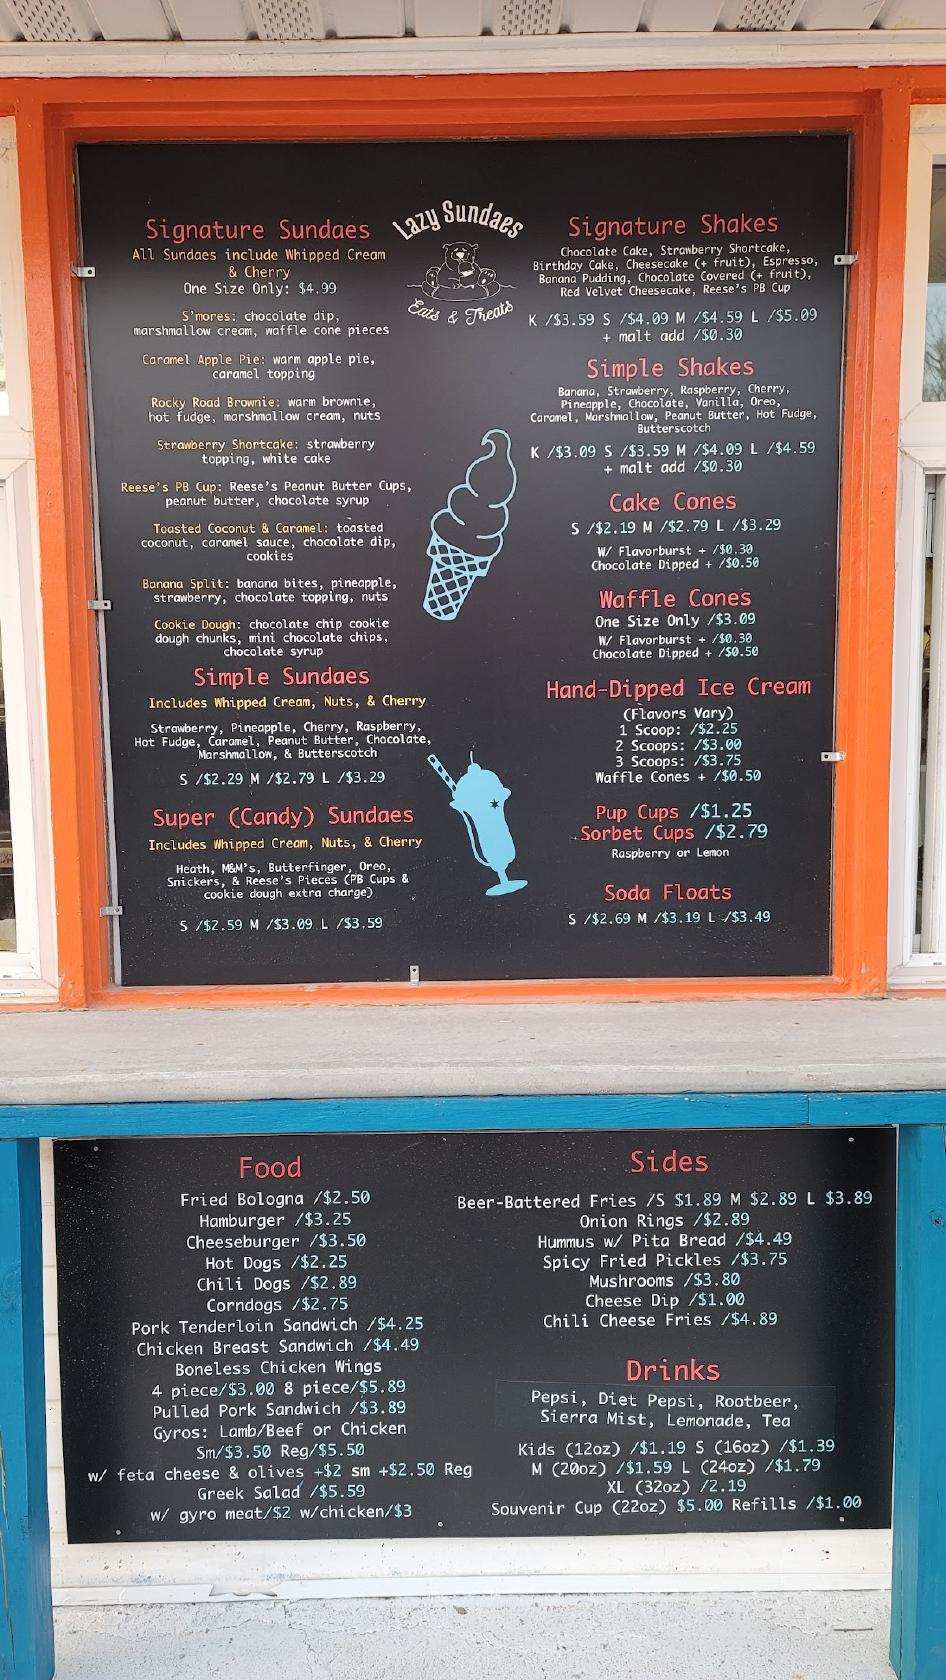 Lazy Sundaes
Eats & Treats
Signature Sundaes
All Sundaes include Whipped Cream
& Cherry
One Size Only: $4.99
S'mores: chocolate dip,
marshmallow cream, waffle cone pieces
Caramel Apple Pie: warm apple pie,
caramel topping
Rocky Road Brownie: warm brownie,
hot fudge, marshmallow cream, nuts
Strawberry Shortcake: strawberry
topping, white cake
Reese's PB Cup: Reese's Peanut Butter Cups,
peanut butter, chocolate syrup
Toasted Coconut & Caramel: toasted
coconut, caramel sauce, chocolate dip,
cookies
Banana Split: banana bites, pineapple,
strawberry, chocolate topping, nuts
Cookie Dough: chocolate chip cookie
dough chunks, mini chocolate chips,
chocolate syrup
Simple Sundaes
Includes Whipped Cream, Nuts, & Cherry
Strawberry, Pineapple, Cherry, Raspberry,
Hot Fudge, Caramel, Peanut Butter, Chocolate,
Marshmallow, & Butterscotch
S /$2.29 M /$2.79 L /$3.29
Super (Candy) Sundaes
Includes Whipped Cream, Nuts, & Cherry
Heath, M&M's, Butterfinger, Oreo,
Snickers, & Reese's Pieces (PB Cups &
cookie dough extra charge)
S /$2.59 M /$3.09 L /$3.59
Signature Shakes
Chocolate Cake, Strawberry Shortcake,
Birthday Cake, Cheesecake (+ fruit), Espresso,
Banana Pudding, Chocolate Covered (+ fruit),
Red Velvet Cheesecake, Reese's PB Cup
K /$3.59 S /$4.09 M /$4.59 L /$5.09
+ malt add /$0.30
Simple Shakes
Banana, Strawberry, Raspberry, Cherry,
Pineapple, Chocolate, Vanilla, Oreo,
Caramel, Marshmallow, Peanut Butter, Hot Fudge,
Butterscotch
K /$3.09 S /$3.59 M /$4.09 L /$4.59
+ malt add /$0.30
Cake Cones
S /$2.19 M /$2.79 L /$3.29
W/ Flavorburst + /$0.30
Chocolate Dipped + /$0.50
Waffle Cones
One Size Only /$3.09
W/ Flavorburst + /$0.30
Chocolate Dipped + /$0.50
Hand-Dipped Ice Cream
(Flavors Vary)
1 Scoop: /$2.25
2 Scoops: /$3.00
3 Scoops: /$3.75
Waffle Cones + /$0.50
Pup Cups /$1.25
Sorbet Cups /$2.79
Raspberry or Lemon
Soda Floats
S /$2.69 M /$3.19 L /$3.49
Food
Fried Bologna /$2.50
Hamburger /$3.25
Cheeseburger /$3.50
Hot Dogs /$2.25
Chili Dogs /$2.89
Corndogs /$2.75
Pork Tenderloin Sandwich /$4.25
Chicken Breast Sandwich /$4.49
Boneless Chicken Wings
4 piece/$3.00 8 piece/$5.89
Pulled Pork Sandwich /$3.89
Gyros: Lamb/Beef or Chicken
Sm/$3.50 Reg/$5.50
w/ feta cheese & olives +$2 sm +$2.50 Reg
Greek Salad /$5.59
w/ gyro meat/$2 w/chicken/$3
Sides
Beer-Battered Fries /S $1.89 M $2.89 L $3.89
Onion Rings /$2.89
Hummus w/ Pita Bread /$4.49
Spicy Fried Pickles /$3.75
Mushrooms /$3.80
Cheese Dip /$1.00
Chili Cheese Fries /$4.89
Drinks
Pepsi, Diet Pepsi, Rootbeer,
Sierra Mist, Lemonade, Tea
Kids (12oz) /$1.19 S (16oz) /$1.39
M (20oz) /$1.59 L (24oz) /$1.79
XL (32oz) /2.19
Souvenir Cup (22oz) $5.00 Refills /$1.00